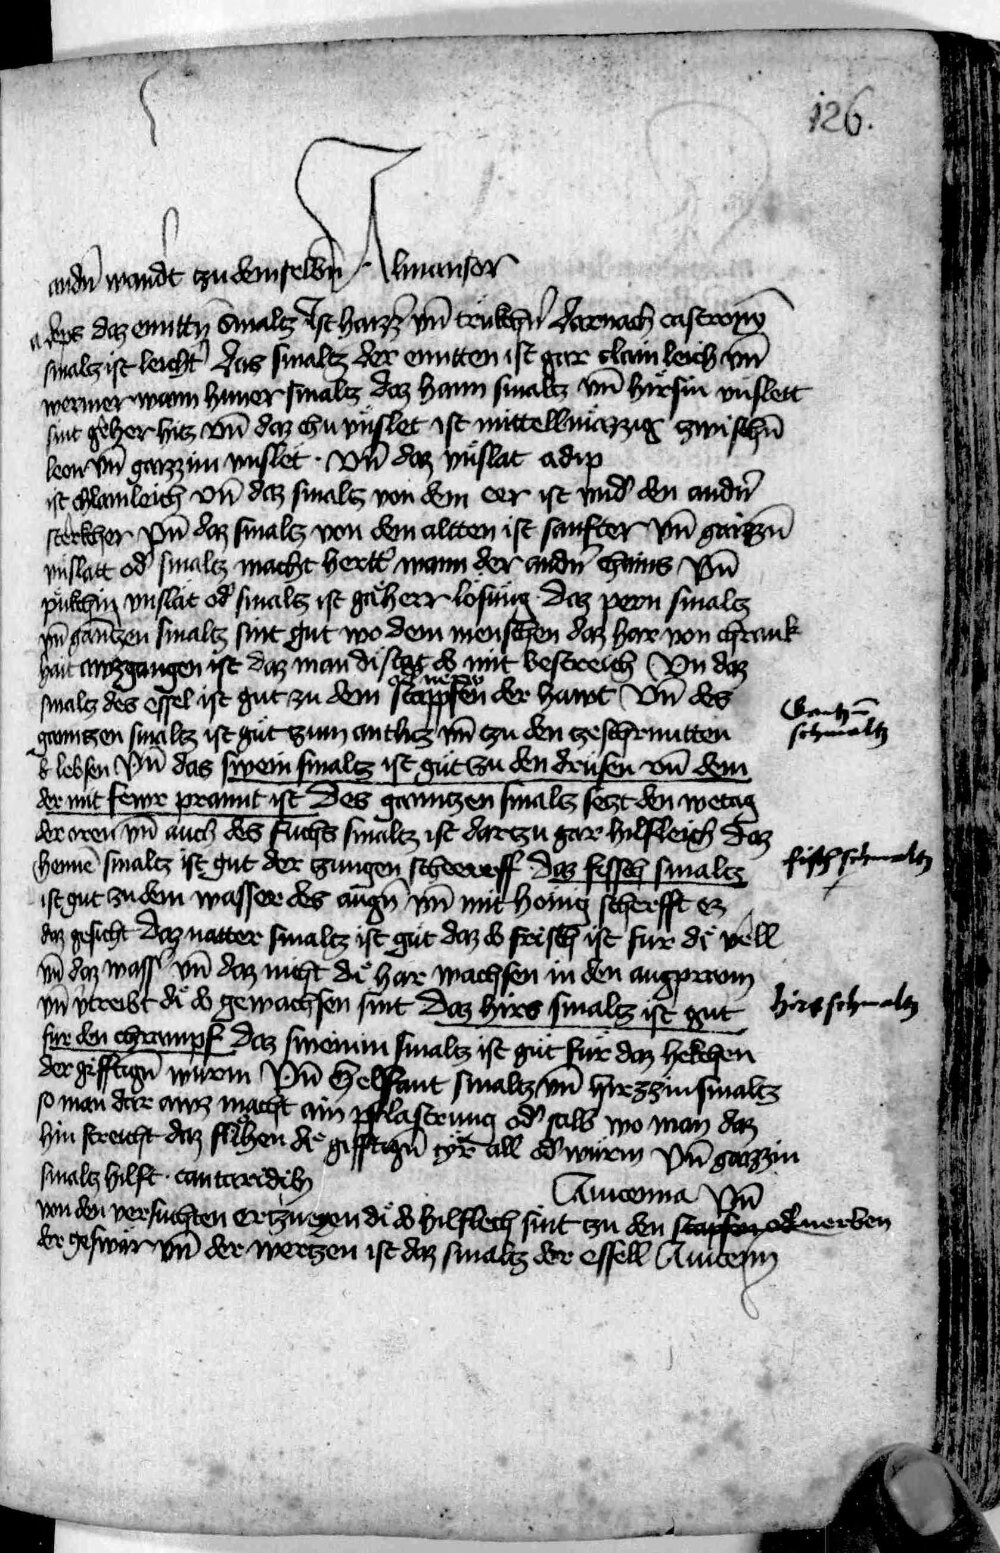 126.
andn̄ wandt̄ tzu demselbn̄ · Almansor
adeps daz ennttn̄ Smaltz Ist haizz vn̄ trukchn̄ Darnach castrony
smaltz ist leicht Das smaltz der enntten ist gar clain leich vn̄
wermer wann hunersmaltz daz hann smaltz vn̄ hirsin unslett
sint geher hitz vn̄ daz chu unslet ist mittellmäzzig zwischn̄
leon vn̄ gaizzim unslet · vn̄ daz unslat adip
ist chlainleich vn̄ daz smaltz von dem eer ist und den andn̄
sterkcher vn̄ daz smaltz von dem altten ist sanfter vn̄ gaizzn̄
unslatt od smaltz macht hertt wann der andn̄ chains vn̄
pukchin unslat od smaltz ist gäherr losung Daz pern smaltz
vn̄ gantzen smaltz sint gut wo dem menschen daz har von chrank
hait auzgangen ist daz man di stat do mit bestreich Vn daz
smaltz des essel ist gut zu dem stappfen der hawt Vn̄ des
gantzen smaltz ist gut tzum antlitz vn̄ tzu den tzeschrnitten
lebsen Vn̄ das swein smaltz ist gut tzu den drusen vn̄ dem
der mit fewr prannt ist Des ganntzen smaltz setzt den wetag
der oren vn̄ auch des fuchs smaltz ist dartzu gar hilfleich Daz
hennē smaltz ist gut der tzungen scheerff Daz fissch smaltz
ist gut zu dem wasser des augn̄ vn̄ mit honig scherfft ez
daz gesicht Daz natter smaltz ist gut daz do frisch ist fur di vell
vn̄ daz wass vn̄ daz nicht di har wachsen in den augprawn
vn̄ vtreibt di do gewachsen sint Daz hirs smaltz ist gut
fur den chrampf Daz sweinin smaltz ist gut fur daz hekchen
der gifftign̄ wurm Vn̄ Helfant smaltz vn̄ hirzzin smaltz
so man dar awz macht ain pflastrung od salb wo man daz
hin streicht daz flihen di gifftign̄ tyr all od wurm Vn̄ gaizzin
smaltz hilft · cantaridib
Auicenna Vn̄
von den versuchten ertznegen di do hilflech sint tzu den stapfen od nerben
der geswär vn̄ der wertzen ist daz smaltz der essell Auicenn
Gantzn̄
schmaltz
fisch schmaltz
hirs schmaltz